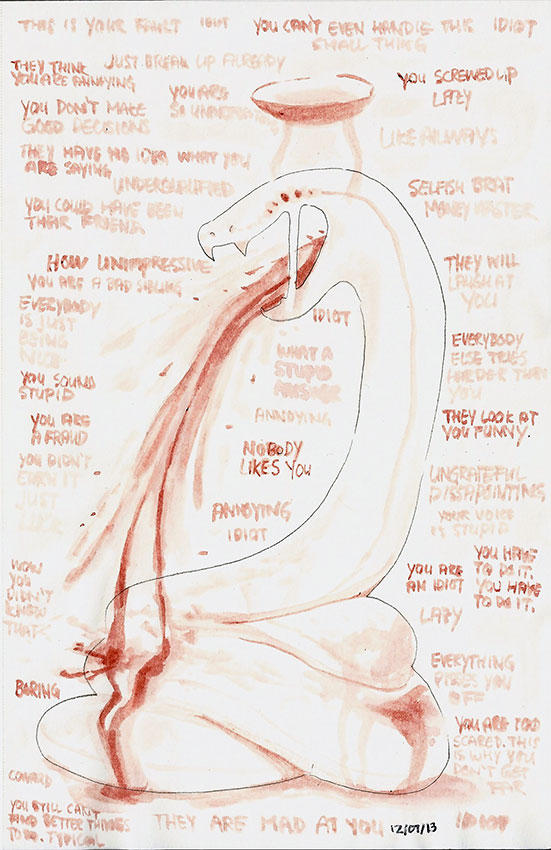 THIS IS YOUR FAULT
IDIOT
YOU CAN'T EVEN HANDLE THIS
SMALL THING
IDIOT
JUST BREAK UP ALREADY
THEY THINK
YOU ARE ANNOYING
YOU ARE
SO
YOU SCREWED UP
LAZY
YOU DON'T MAKE
GOOD DECISIONS
LIKE ALWAYS
THEY HAVE NO IDEA WHAT YOU
ARE SAYING
UNDERQUALIFIED
SELFISH BRAT
MONEY WASTER
YOU COULD HAVE BEEN
THEIR FRIEND
HOW UNIMPRESSIVE
YOU ARE A BAD SIBLING
THEY WILL
LAUGH AT
YOU
EVERYBODY
IS JUST
BEING
NICE
IDIOT
WHAT A
STUPID
ANSWER
EVERYBODY
ELSE TRIES
HARDER THAN
YOU
YOU SOUND
STUPID
ANNOYING
THEY LOOK AT
YOU FUNNY.
YOU ARE
A FRAUD
NOBODY
LIKES YOU
YOU DIDN'T
EARN IT
JUST
LUCK
UNGRATEFUL
DISSAPOINTING
ANNOYING
IDIOT
YOUR VOICE
IS STUPID
HOW
YOU
DIDN'T
KNOW
THAT
YOU ARE
AN IDIOT
YOU HAVE
TO DO IT.
YOU HAVE
TO DO IT.
LAZY
EVERYTHING
PISSES YOU
OFF
BORING
YOU ARE TOO
SCARED. THIS
IS WHY YOU
DON'T GET
FAR
COWARD
YOU STILL CAN'T
FIND BETTER THINGS
TO DO. TYPICAL
THEY ARE MAD AT YOU
12/07/13
IDIOT